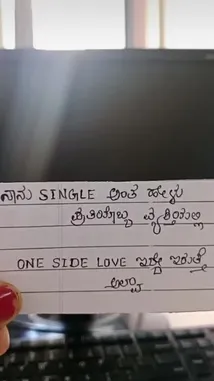 ನಾನು SINGLE ಅಂತ ಹೇಳೋ
ಪ್ರತಿಯೊಬ್ಬ ವ್ಯಕ್ತಿಯಲ್ಲಿ
ONE SIDE LOVE ಇದ್ದೇ ಇರುತ್ತೆ
ಅಲ್ವಾ